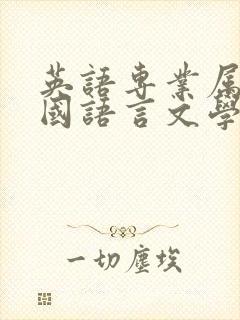 英語専業属
國語言文學
一切塵埃